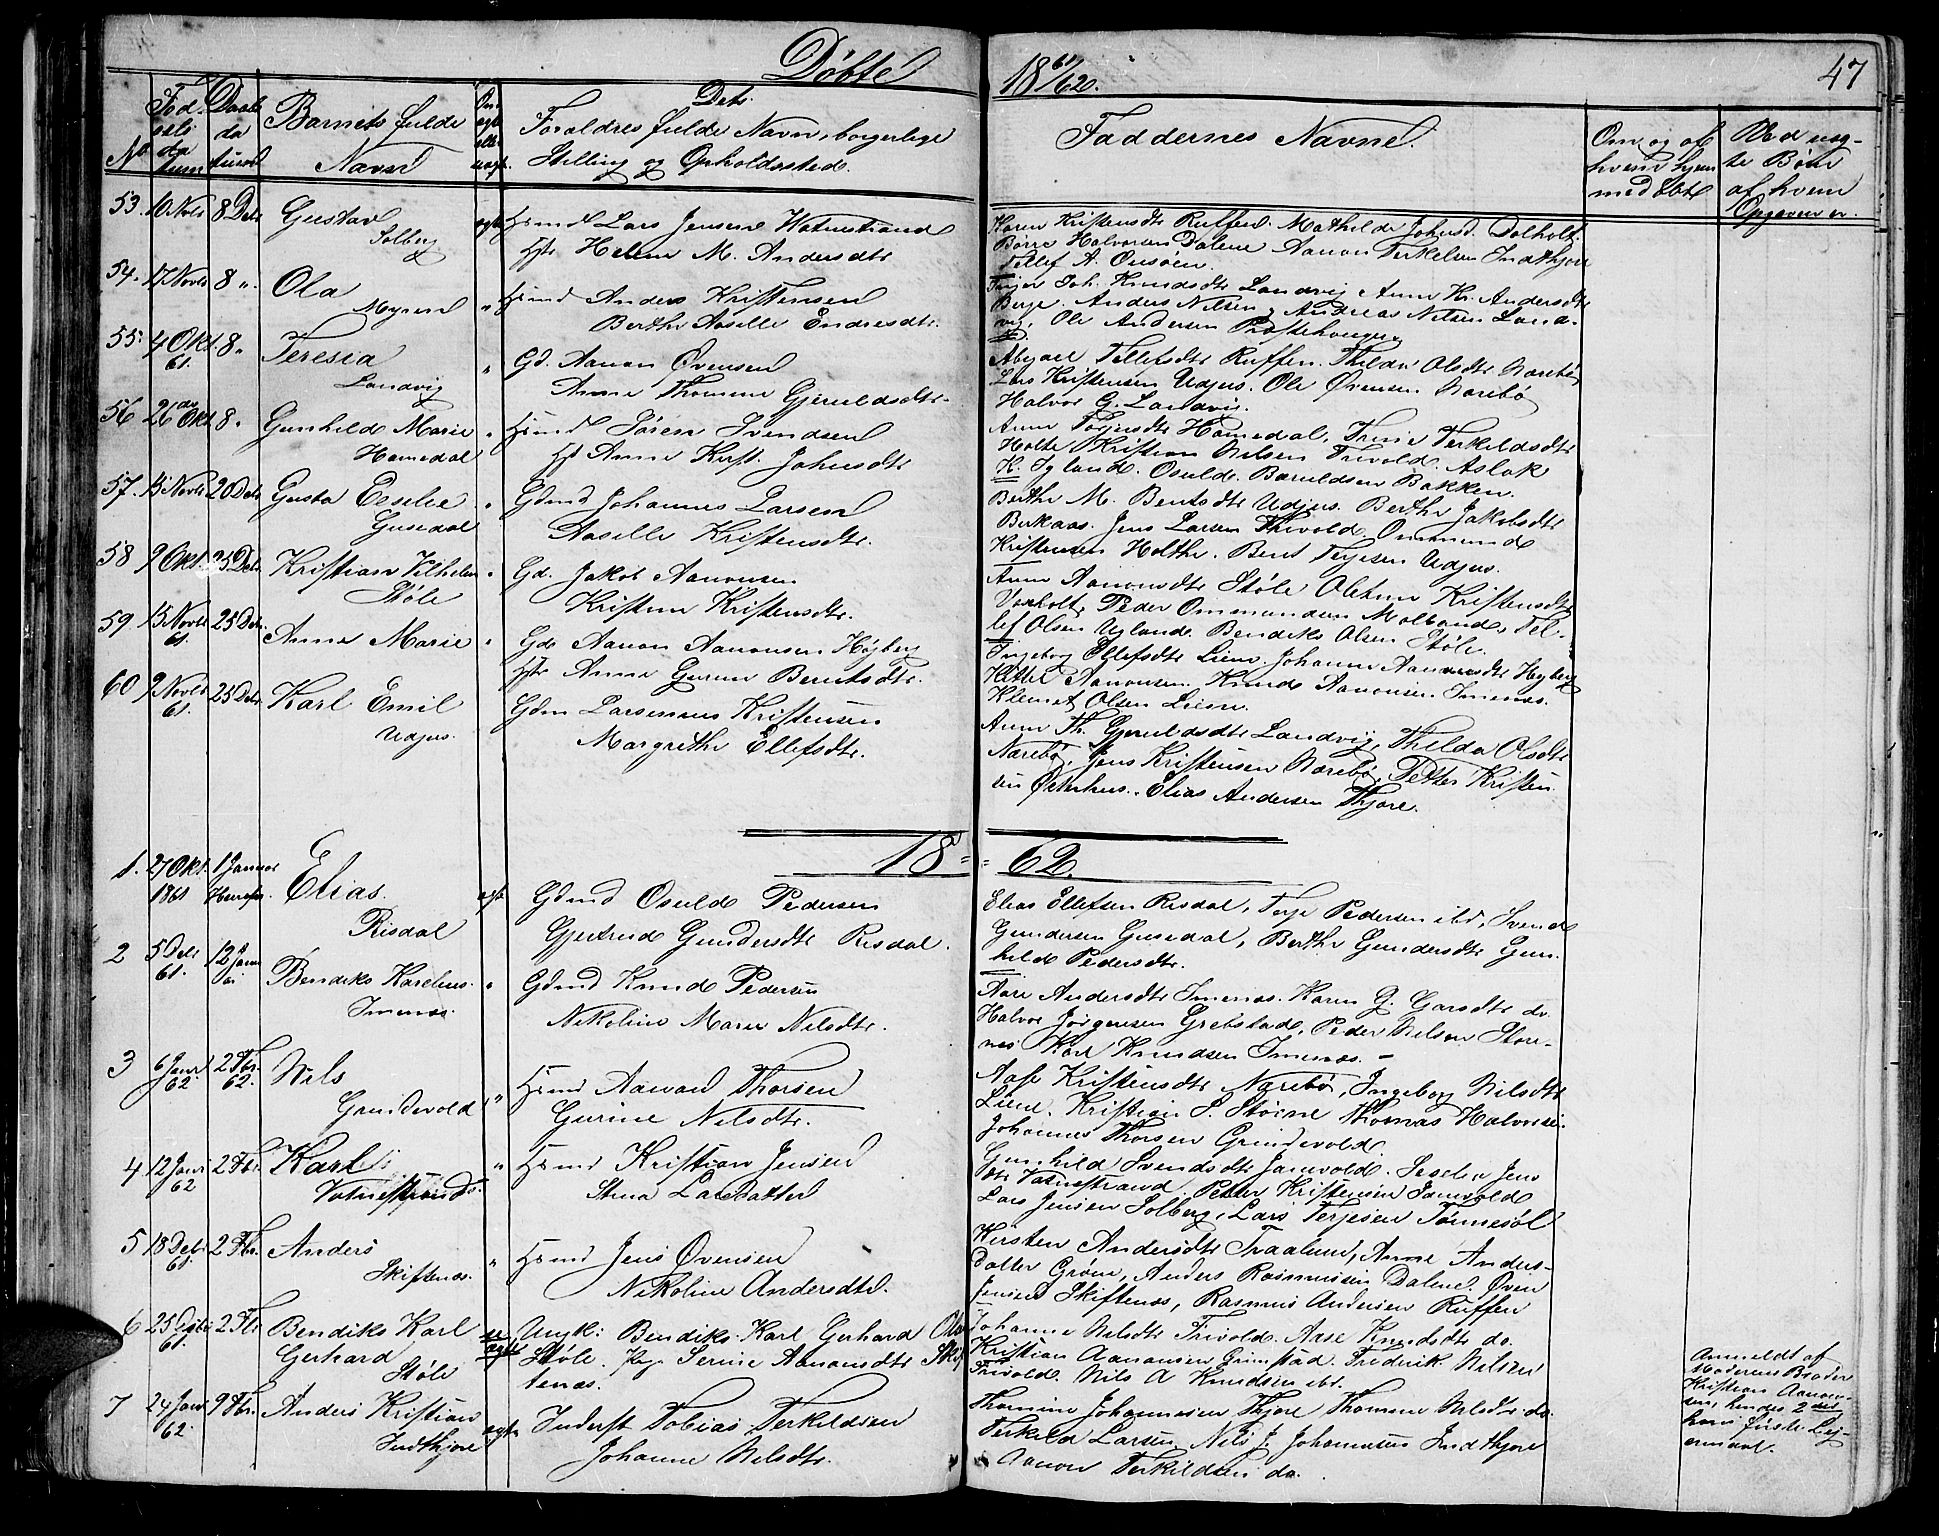 Døbte
18 61/62.
47
No
Fød-
sels
da
tum
Daabs
da
tum
Barnets fulde
Navn
Om
ægte
eller
uægte
Dets
Forældres fulde Navn, borgerlige
Stilling og Opholdssted.
Faddernes Navne.
Om og af
hvem hjem-
medøbt
Ved uæg-
te Børn
af hvem
Opgaven er.
53. 10 Novbr 8 Debr Gustav Solberg ægte Hsmd Lars Jensen Vatnestrand
Hst Helene M. Andersdtr
Karen Kristensdtr Ruffen. Mathilde Johnsd. Dalholt.
Børre Halvorsen Dalene Aanon Terkelsen Indthjore
Tellef A. Omsøen.
54. 17 Novbr 8 " Ola Myren " Hsmd Anders Kristensen
Berthe Aaselle Endresdtr.
Inger Joh. Knudsdtr Landvig Anne Kr. Andersdtr
Berge. Anders Nilsen, Andreas Nilsen Land-
vig, Ole Andersen Præstehougen
55. 4 Okt. 61. 8 " Teresia Landvig " Gd. Aanon Øvensen
Anne Thomine Gjeruldsdtr.
Abigael Tellefsdtr Ruffen. Thilda Olsdtr Narebø
Lars Kristensen Udjus. Ole Øvensen Narebø
Halvor G. Landvig.
56 26de Okt 8 " Gunhild Marie Homedal " Hsmd Søren Svendsen
Hst Anne Kirst. Johnsdtr
Anne Torjusdtr Homedal, Trine Terkildsdtr
Holte Kristian Nilsen Trivold. Aslak
K. Igland. Osuld Baruldsen Bakken.
57. 13 Novbr 20 Debr Gusta Eeselie Gusedal " Gdmd Johannes Larsen
Aaselle Kristensdtr.
Berthe M. Bentsdtr Udjus. Berthe Jakobsdtr
Berkaas. Jens Larsen Trivold Ommund
Kristensen Holthe. Bent Terjesen Udjus.
58 9 Okt. 25 Debr. Kristian Vilhelm Støle " Gd. Jakob Aanonsen
Kristine Kristensdtr.
Anne Aanonsdtr Støle Oletine Kristensdtr
Voxholt Peder Ommundsen Molland Tel-
lef Olsen Ugland. Bendiks Olsen Støle.
59 15 Novbr 61. 25 Debr. Anne Marie " Gd. Aanon Aanonsen Høgberg
Hst Anne Gurine Bentsdtr.
Ingeborg Ellefsdtr Liene Johanne Aanonsdtr Hegberg
Kittel Aanonsen Knud Aanonsen Imenæs.
Klemet Olsen Liene.
60 9 Novbr 61. 25 Debr Karl Emil Udjus. Gdm Larsemnus Kristensen
Margrethe Ellefsdtr.
Anne Th. Gjeruldsdtr Landvig, Thilda Olsdtr
Narebø, Jens Kristensen Narebø, Petter Kristen-
sen Østerhus. Elias Andersen Thjore.
18 = = 62.
1. 27 Okt. 1861 1 Januar Elias. Risdal ægt. Gdmd Osuld Pedersen
Gjertrud Gundersdtr Risdal.
Elias Ellefsen Risdal, Terje Pedersen ibd, Svend
Gundersen Gusedal, Berthe Gundersdtr Gun-
hild Pedersdtr.
2 5 Debr 61. 12 Janu ar Bendiks Karelius. Imenæs. " Gdmd Knud Pedersen
Nikoline Marie Nilsdtr.
Aase Andersdtr Imenæs. Karen G. Garsdtr do.
Halvor Jørgensen Grebstad, Peder Nilsen Store-
næs Karl Knudsen Imenæs. -
3 6 Janr 62. 2 Fbr. 62. Nils Grindevold " Hsmd Aanon Thorsen
Gurine Nilsdtr.
Aase Kristensdtr Narebø, Ingeborg Nilsdtr
Liene. Kristian S. Størne Thomas Halvorsen
Johannes Thorsen Grindevold.
4 12 Janr 62 2 Fbr. Karl Vatnestrand. " Hsmd Kristian Jensen
Stina Larsdatter
Gunhild Svendsdtr Jomvold. Seselia Jens
dtr Vatnestrand Petter Kristensen Jomvold
Lars Jensen Solberg, Lars Terjesen Tønnesøl
5 18 Debr 61. 2 Fbr. Anders Skiftenæs. " Hsmd Jens Øvensen
Nikoline Andersdtr.
Kirsten Andersdtr Traalum, Anne Anders-
datter Grøm, Anders Rasmusen Dalene. Øven
Jensen Skiftenæs, Rasmus Andersen Ruffen
6 25 Debr 61. 2 Fbr Bendiks Karl Gerhard Støle uægte Ungk: Bendiks Karl Gerhard Olsen
Støle. Pige Serine Aanonsdtr Skif
tenæs.
Johanne Nilsdtr Trivold. Aase Knudsdtr do.
Kristian Aanonsen Grimstad. Frederik Nilsen
Trivold. Nils A Knudsen ibd.
Anmeldt af
Moderens Broder
Kristian Aanon-
sen, hendes 2det
hans første Lej-
ermaal.
7 24 Janr 62. 9 Fbr. Anders Kristian Indthjore ægte Inderst Tobias Terkildsen
Johanne Nilsdtr.
Thomine Johannesen Thjore Thomine Nilsdtr do.
Terkild Larsen Nils J. Johannesen Indthjore
Aanon Terkildsen do.